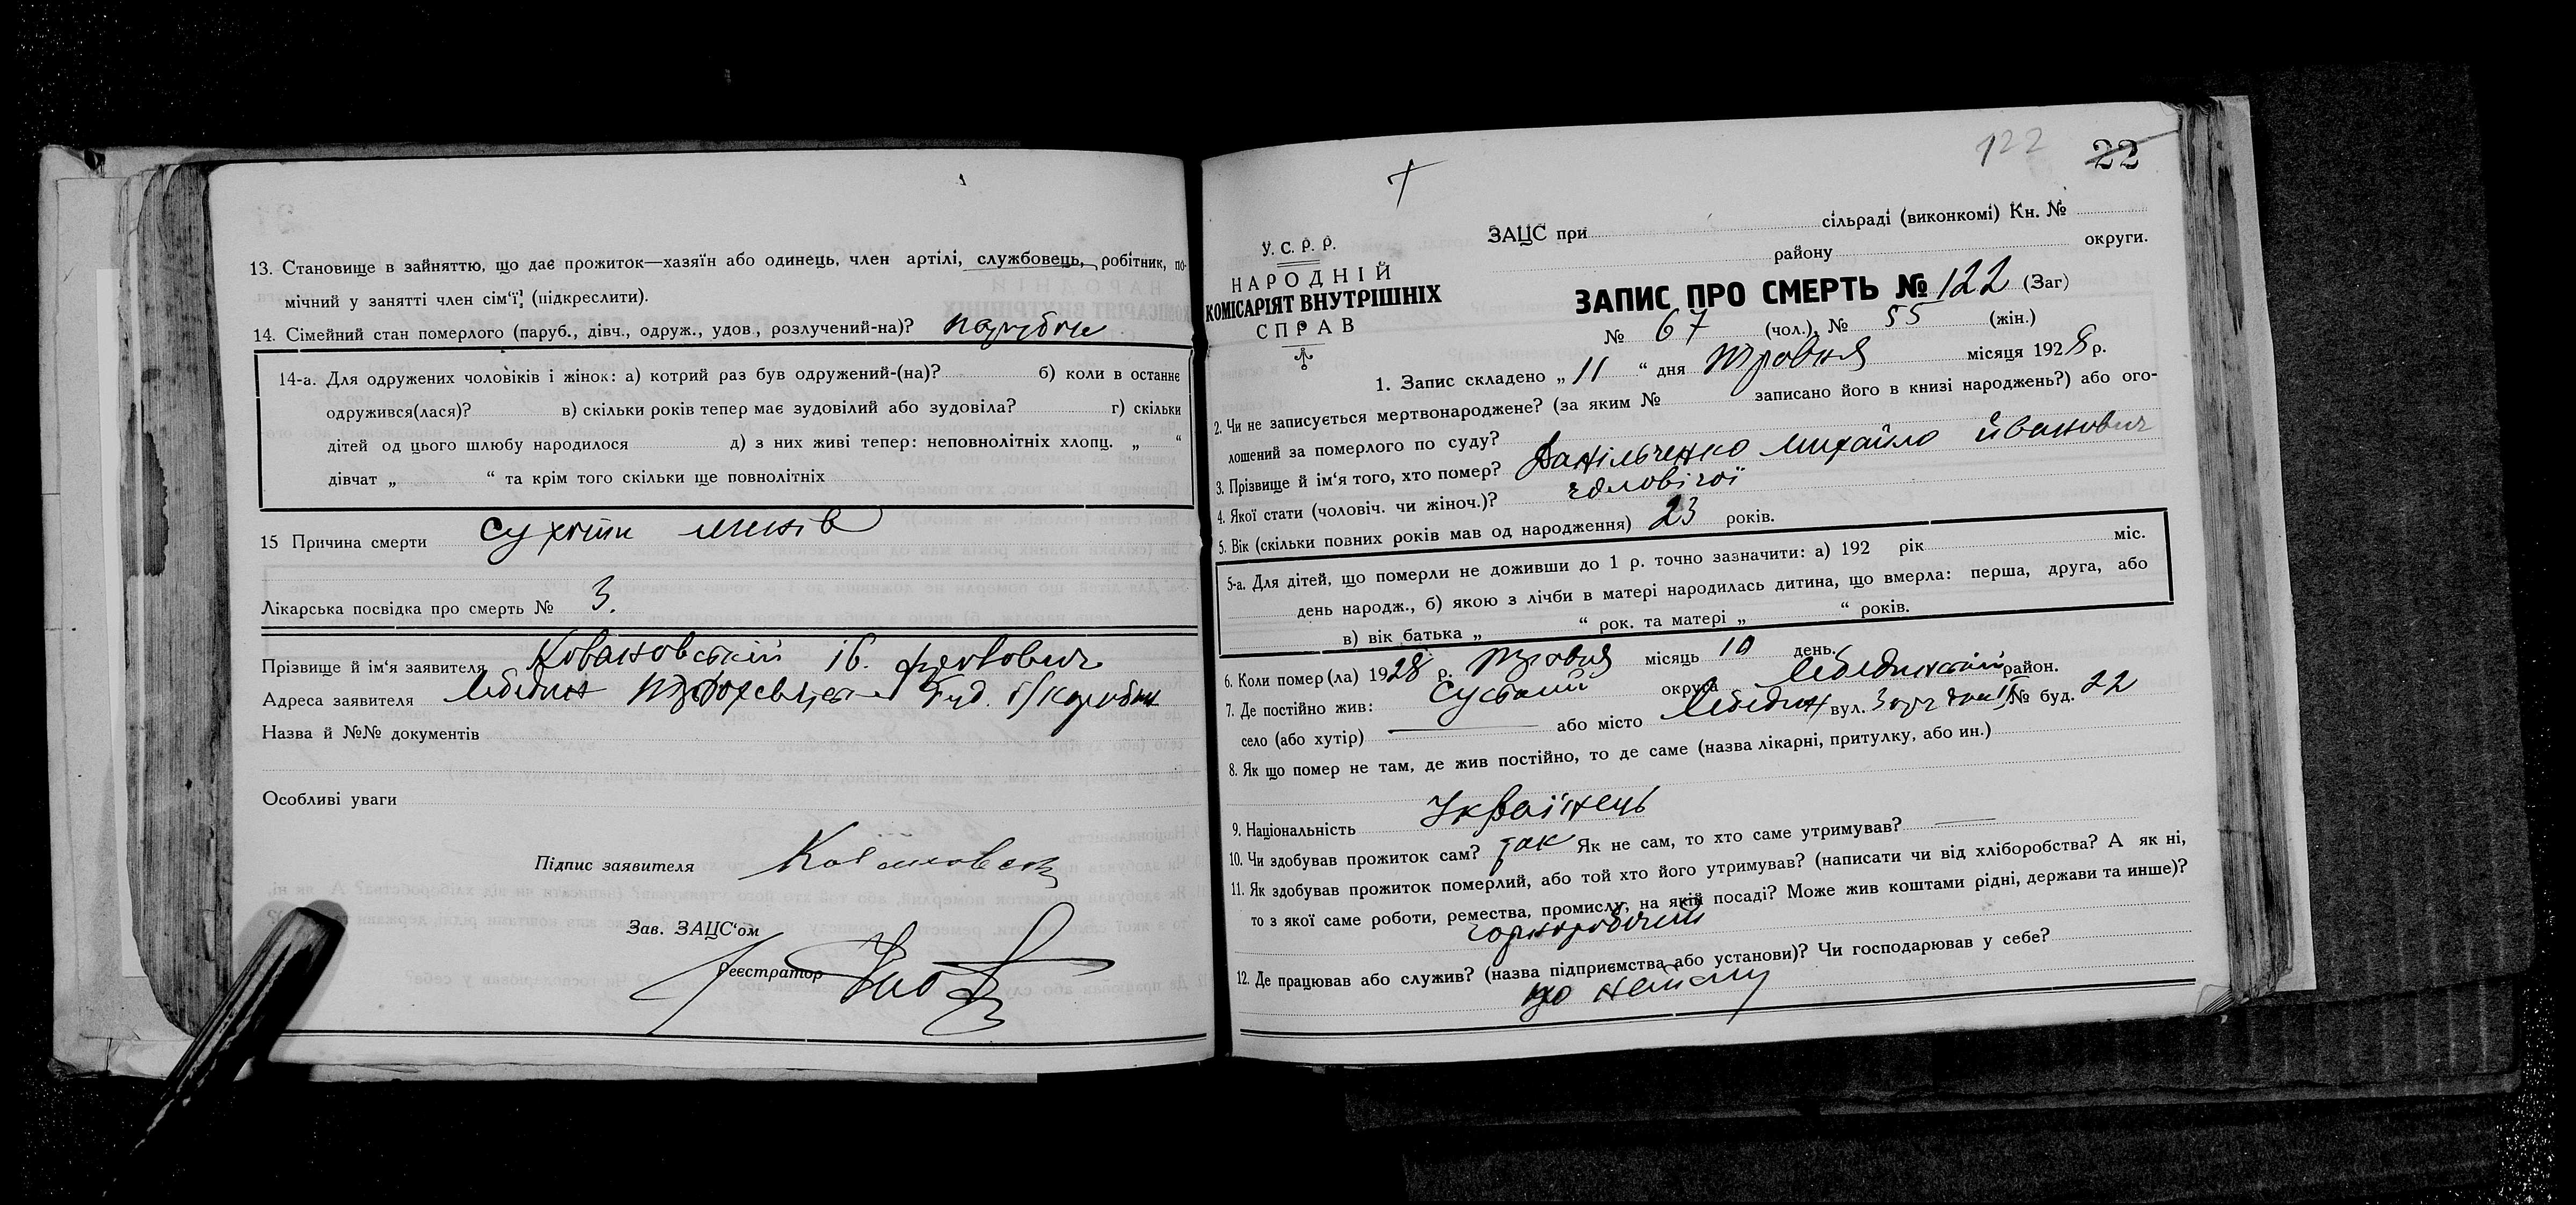 13. Становище в зайняттю, що дає прожиток—хазяїн або одинець, член артілі, службовець, робітник, по-
мічний у занятті член сім‘ї, (підкреслити).
14. Сімейний стан померлого (паруб., дівч., одруж., удов., розлучений-на)? парубок
14-а. Для одружених чоловіків і жінок: а) котрий раз був одружений-(на)? б) коли в останнє
одружився(лася)? в) скільки років тепер має зудовілий або зудовіла? г) скільки
дітей од цього шлюбу народилося д) з них живі тепер: неповнолітніх хлопц. „ “
дівчат „ “ та крім того скільки ще повнолітніх
15 Причина смерти Сухоти легенів
Лікарська посвідка про смерть № 3.
Прізвище й ім‘я заявителя
Адреса заявителя Лебедин буд.
Назва й №№ документів
Особливі уваги
Підпис заявителя
Зав. ЗАЦС‘ом
Реєстратор
122 22
У. С. Р. Р.
НАРОДНІЙ
КОМІСАРІЯТ ВНУТРІШНІХ
СПРАВ
ЗАЦС при сільраді (виконкомі) Кн. №
району округи.
ЗАПИС ПРО СМЕРТЬ № 122 (Заг)
№ 67 (чол.), № 55 (жін.)
1. Запис складено „ 11 “ дня травня місяця 1928 р.
2. Чи не записується мертвонароджене? (за яким № записано його в книзі народжень?) або ого-
лошений за померлого по суду?
3. Прізвище й ім‘я того, хто помер? Данільченко Михайло Йванович
4. Якої стати (чоловіч. чи жіноч.)? чоловічої
5. Вік (скільки повних років мав од народження) 23 років.
5-а. Для дітей, що померли не доживши до 1 р. точно зазначити: а) 192 рік міс.
день народж., б) якою з лічби в матері народилась дитина, що вмерла: перша, друга, або
в) вік батька „ “ рок. та матері „ “ років.
6. Коли помер(ла) 1928 р. травня місяць 10 день.
7. Де постійно жив: Сумській округа Лебединській район.
село (або хутір) — або місто Лебедин вул. № буд. 22
8. Як що помер не там, де жив постійно, то де саме (назва лікарні, притулку, або ин.)
9. Національність Українець
10. Чи здобував прожиток сам? так Як не сам, то хто саме утримував? —
11. Як здобував прожиток померлий, або той хто його утримував? (написати чи від хліборобства? А як ні,
то з якої саме роботи, ремества, промислу, на якій посаді? Може жив коштами рідні, держави та инше)?
чорноробочий
12. Де працював або служив? (назва підприємства або установи)? Чи господарював у себе?
по найму